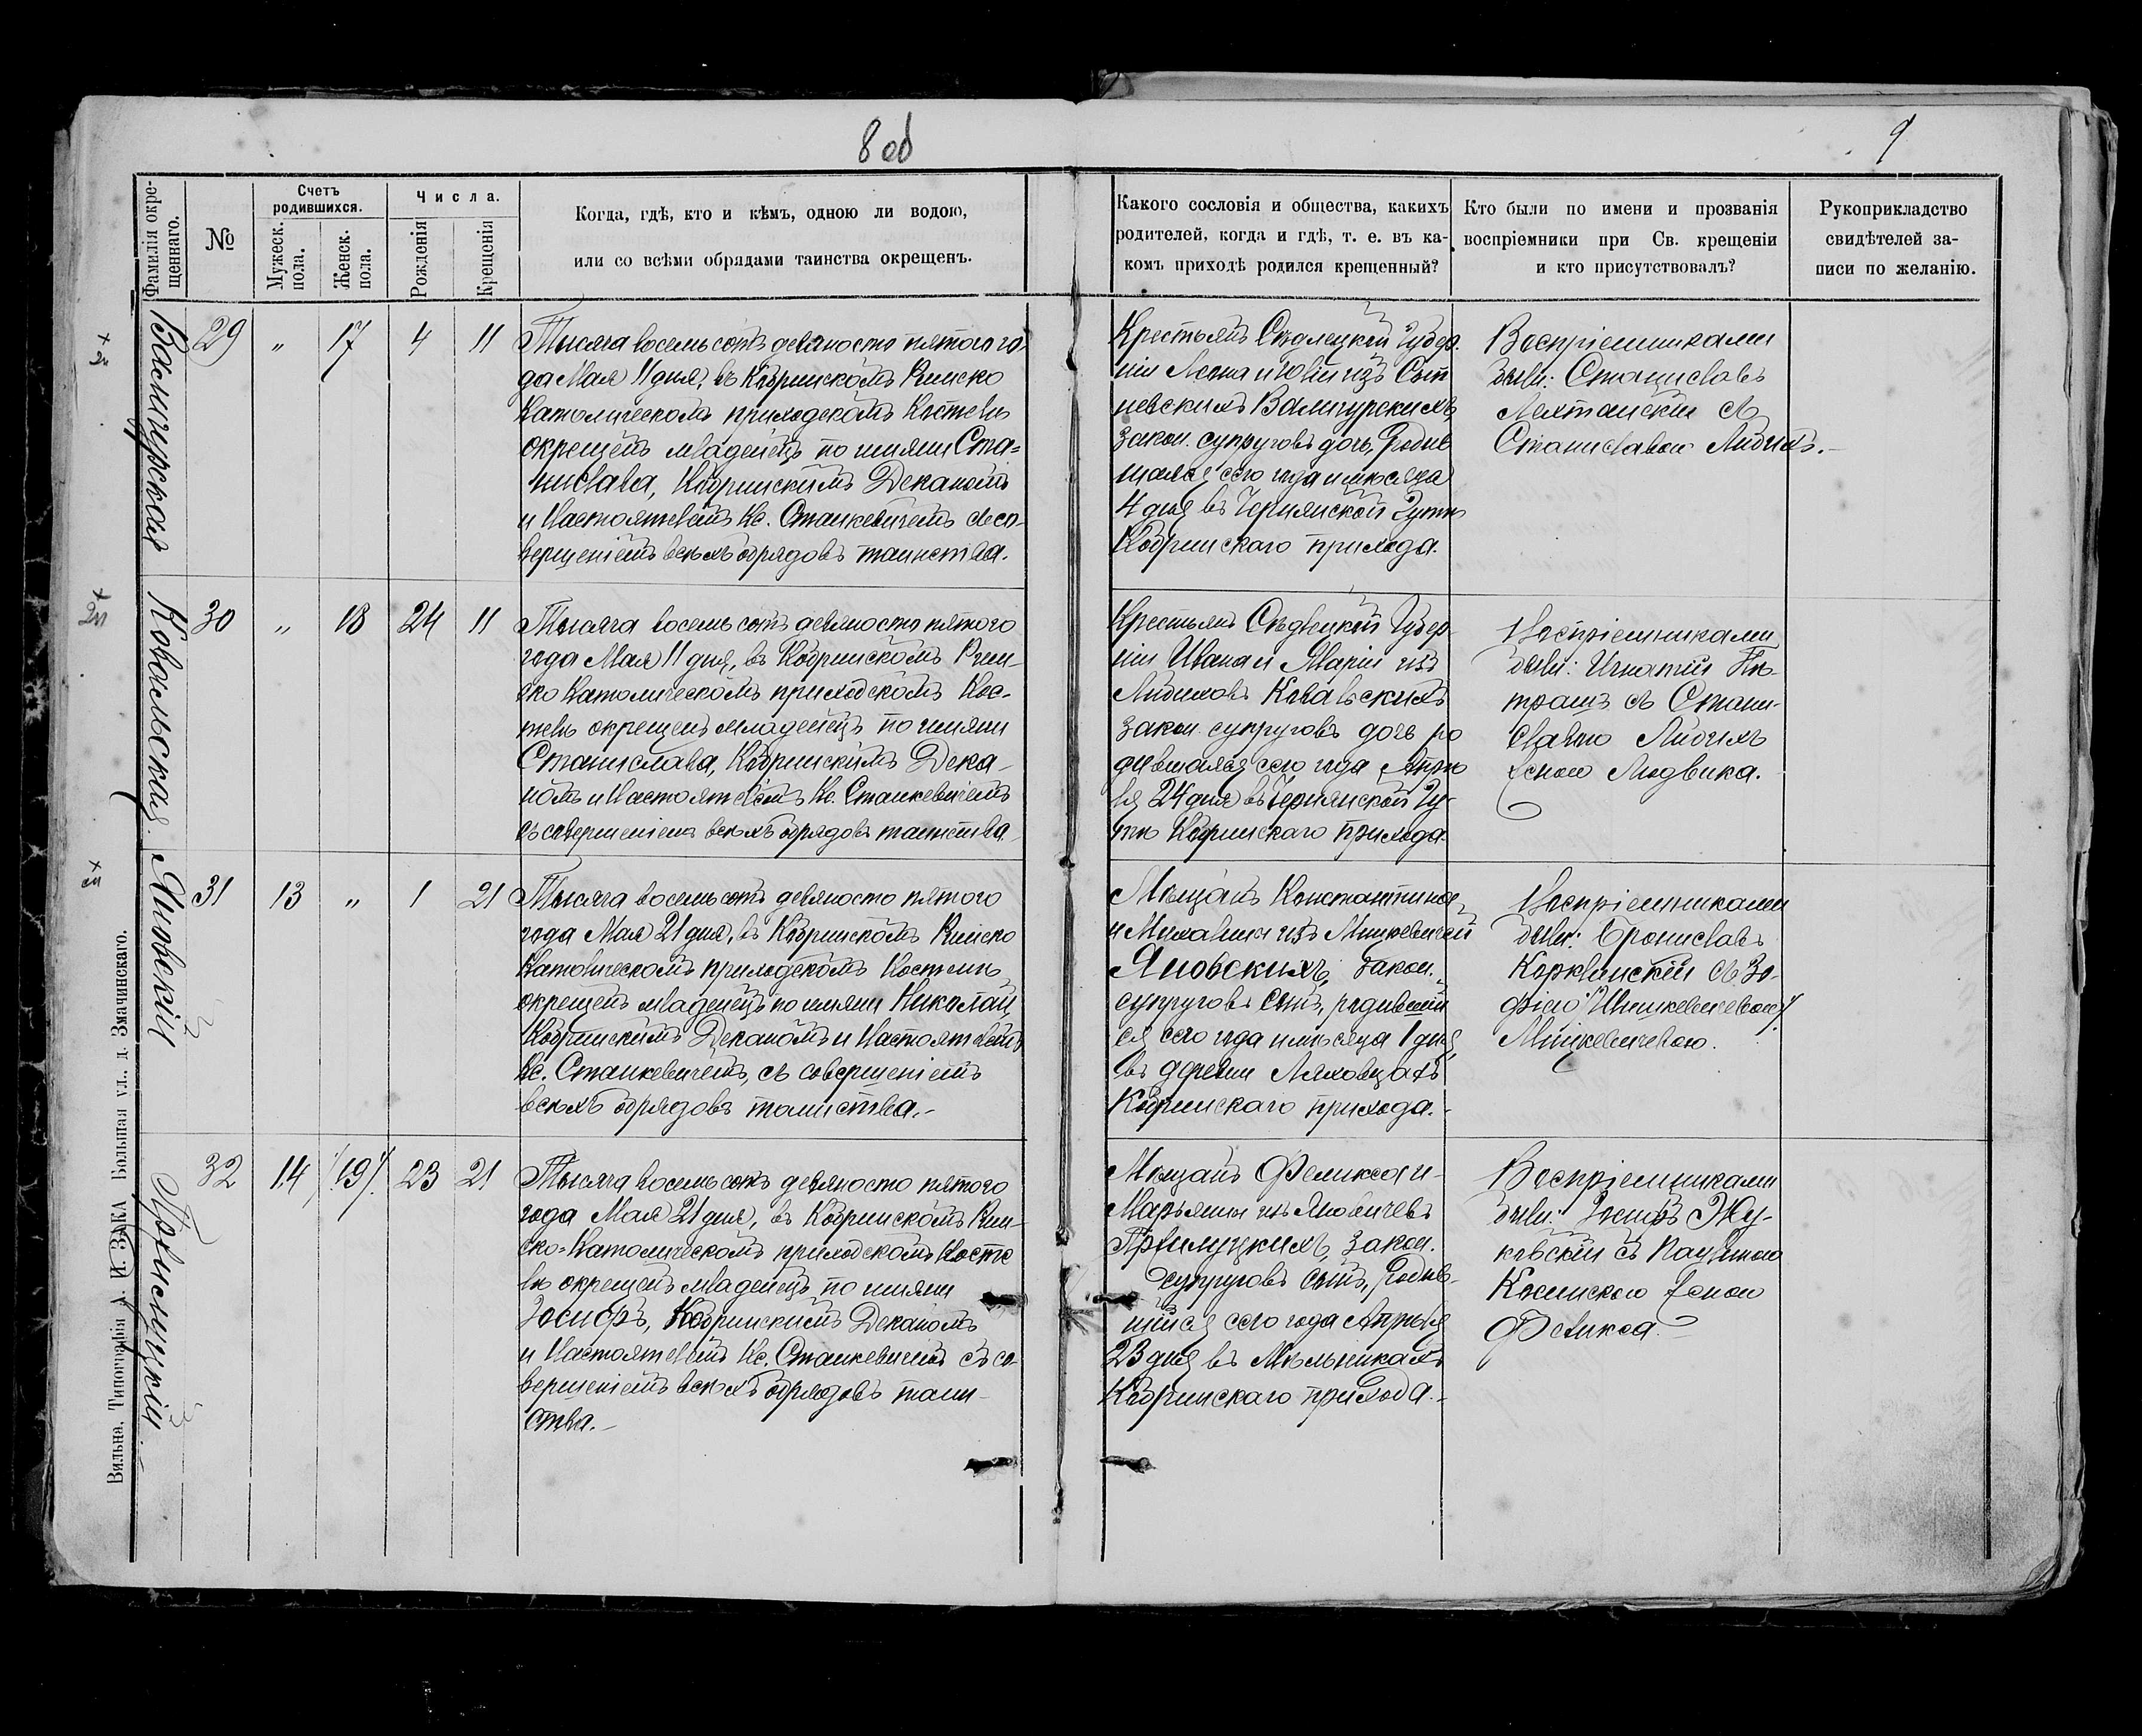 8 об
9
Фамилія окре-
щеннаго.
№
Счетъ
родившихся.
Мужеск.
пола.
Женск.
пола.
Числа.
Рожденія
Крещенія
Когда, гдѣ, кто и кѣмъ, одною ли водою,
или со всѣми обрядами таинства окрещенъ.
Какого сословія и общества, какихъ
родителей, когда и гдѣ, т. е. въ ка-
комъ приходѣ родился крещенный?
Кто были по имени и прозванія
воспріемники при Св. крещеніи
и кто присутствовалъ?
Рукоприкладство
свидѣтелей за-
писи по желанію.
29
"
17
4
11
Тысяча восемьсотъ девяносто пятого го-
да Мая 11 дня, въ Кобринскомъ Римско
Католическомъ приходскомъ Костелѣ
окрещенъ младенецъ по имяни Ста=
нислава, Кобринскимъ Деканомъ
и Настоятелемъ Кс. Станкевичемъ съ со-
вершеніемъ всѣхъ обрядовъ таинства.
Крестьянъ Губер.
ніи Леона и изъ
закон. супруговъ дочь, родив
шаяся сего года и мѣсяца
4 дня въ Чернянской Гутѣ
Кобринскаго прихода.
Воспріемниками
были: Станиславъ
съ
Станиславою Лидихъ.-
Ковальская.
30
"
18
24
11
Тысяча восемьсотъ девяносто пятого
года Мая 11 дня, въ Кобринскомъ Рим-
ско Католическомъ приходскомъ Кос-
телѣ окрещенъ младенецъ по имяни
Станислава, Кобринскимъ Дека-
номъ и Настоятелемъ Кс. Станкевичемъ
съ совершеніемъ всѣхъ обрядовъ таинства.
Крестьянъ Сѣдлецкой Губер-
ніи Ивана и Маріи изъ
Лидиховъ Ковальскихъ
закон. супруговъ дочь ро
дившаяся сего года Апрѣ
ля 24 дня въ Чернянской Гу-
тѣ Кобринскаго прихода.
Воспріемниками
были: Игнатій Пе-
трашъ съ Стани-
славою Лидихъ
женою Людвика.
Яновскій
31
13
"
1
21
Тысяча восемьсотъ девяносто пятого
года Мая 21 дня, въ Кобринскомъ Римско
Католическомъ приходскомъ Костелѣ
окрещенъ младенецъ по имяни Николай,
Кобринскимъ Деканомъ и Настоятелемъ
Кс. Станкевичемъ, съ совершеніемъ
всѣхъ обрядовъ таинства.-
Мѣщанъ Константина
и Михалины изъ Мицкевичей
Яновскихъ, закон.
супруговъ сынъ, родившій
ся сего года и мѣсяца 1 дня,
въ деревни Ляховцахъ
Кобринскаго прихода.-
Воспріемниками
были: Брониславъ
съ Зо-
фіею
Мицкевичевою.
32
14
/19/.
23
21
Тысяча восемьсотъ девяносто пятого
года Мая 21 дня, въ Кобринскомъ Рим-
ско-Католическомъ приходскомъ Косте
лѣ окрещенъ младенецъ по имяни
Іосифъ, Кобринскимъ Деканомъ
и Настоятелемъ Кс. Станкевичемъ съ со-
вершеніемъ всѣхъ обрядовъ таин-
ства.-
Мѣщанъ Феликса и-
Марьянны изъ Яновичевъ
закон.
супруговъ сынъ, родив-
шійся сего года Апрѣля
23 дня въ Мѣльникахъ
Кобринскаго прихода.-
Воспріемниками
были: Іосифъ Жу-
ковскій съ Паулиною
женою
Феликса.
Вильна. Типографія А. И. ЗАКА Большая ул., д. Змачинскаго.